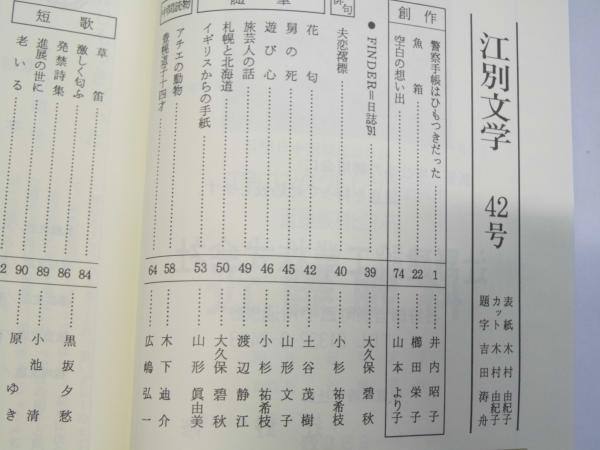 江別文学 42号
表紙 木村 由紀子
カット 木村 由紀子
題字 吉田 涛舟
創作
警察手帳はひもつきだった 1 井内昭子
魚箱 22 櫛田栄子
空白の想い出 74 山本より子
●FINDER＝日誌'91 39 大久保碧秋
俳句
夫恋濡標 40 小杉祐希枝
随筆
花句 42 土谷茂樹
舅の死 45 山形文子
遊び心 46 小杉祐希枝
旅芸人の話 49 渡辺静江
札幌と北海道 50 大久保碧秋
イギリスからの手紙 53 山形眞由美
中間読物
アチエの動物 58 木下迪介
魯幌道子十四才 64 広嶋弘一
短歌
草笛 84 黒坂夕愁
激しく匂ふ
発禁詩集 86
進展の世に 89 小池清
老いる 90 原ゆき
2